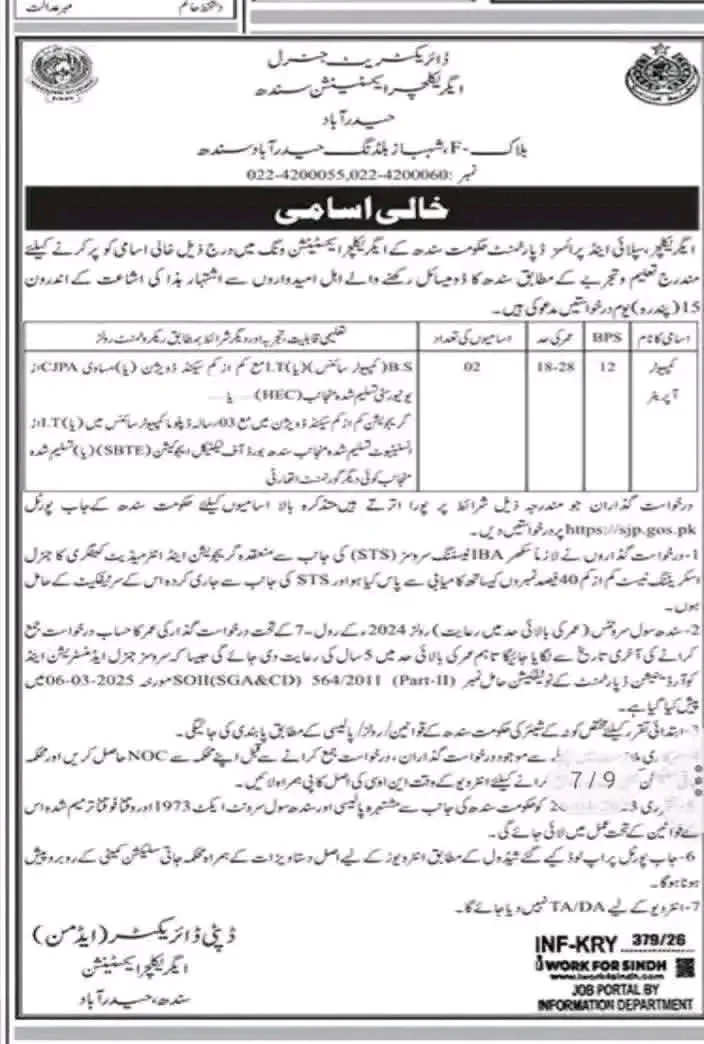 دستخط حاکم
مہر عدالت
ڈائریکٹریٹ جنرل
ایگریکلچر ایکسٹینشن سندھ
حیدرآباد
بلاک -F، شہباز بلڈنگ حیدرآباد سندھ
نمبر: 022-4200055,022-4200060
خالی اسامی
ایگریکلچر، سپلائی اینڈ پرائسز ڈپارٹمنٹ حکومت سندھ کے ایگریکلچر ایکسٹینشن ونگ میں درج ذیل خالی اسامی کو پر کرنے کیلئے
مندرج تعلیم و تجربے کے مطابق سندھ کا ڈومیسائل رکھنے والے اہل امیدواروں سے اشتہار ہذا کی اشاعت کے اندرون
15 (پندرہ) یوم درخواستیں مدعو کی ہیں۔
اسامی کا نام BPS عمر کی حد اسامیوں کی تعداد تعلیمی قابلیت، تجربہ اور دیگر شرائط بمطابق ریکروٹمنٹ رولز
کمپیوٹر آپریٹر 12 18-28 02
B.S (کمپیوٹر سائنس) (یا) I.T مع کم از کم سیکنڈ ڈویژن (یا) مساوی CJPA از
یونیورسٹی تسلیم شدہ منجانب (HEC) ...... یا ......
گریجویشن کم از کم سیکنڈ ڈویژن میں مع 03 سالہ ڈپلوما کمپیوٹر سائنس میں (یا) I.T از
انسٹیٹیوٹ تسلیم شدہ منجانب سندھ بورڈ آف ٹیکنیکل ایجوکیشن (SBTE) (یا) تسلیم شدہ
منجانب کوئی دیگر گورنمنٹ اتھارٹی
درخواست گذاران جو مندرجہ ذیل شرائط پر پورا اترتے ہیں متذکرہ بالا اسامیوں کیلئے حکومت سندھ کے جاب پورٹل
https://sjp.gos.pk پر درخواستیں دیں۔
1- درخواست گذاروں نے لازماً سکھر IBA ٹیسٹنگ سروسز (STS) کی جانب سے منعقدہ گریجویشن اینڈ انٹرمیڈیٹ کیٹگری کا جنرل
اسکریننگ ٹیسٹ کم از کم 40 فیصد نمبروں کیساتھ کامیابی سے پاس کیا ہو اور STS کی جانب سے جاری کردہ اس کے سرٹیفکیٹ کے حامل
ہوں۔
2- سندھ سول سرونٹس (عمر کی بالائی حد میں رعایت) رولز 2024ء کے رول-7 کے تحت درخواست گذار کی عمر کا حساب درخواست جمع
کرانے کی آخری تاریخ سے لگایا جائیگا تاہم عمر کی بالائی حد میں 5 سال کی رعایت دی جائے گی جیسا کہ سروسز جنرل ایڈمنسٹریشن اینڈ
کوآرڈینیشن ڈپارٹمنٹ کے نوٹیفکیشن حامل نمبر SOII(SGA&CD) 564/2011 (Part-II) مورخہ 06-03-2025 میں
پیش کیا گیا ہے۔
3- ابتدائی تقرر کیلئے مختص کوٹہ کے شیئر کی حکومت سندھ کے قوانین / رولز / پالیسی کے مطابق پابندی کی جائیگی۔
سے موجود درخواست گذاران، درخواست جمع کرانے سے قبل اپنے محکمہ سے NOC حاصل کریں اور محکمہ
7/9 کرانے کیلئے انٹرویو کے وقت این او سی کی اصل کاپی ہمراہ لائیں۔
کو حکومت سندھ کی جانب سے مشتہرہ پالیسی اور سندھ سول سرونٹ ایکٹ 1973 اور وقتاً فوقتاً ترمیم شدہ اس
کے قوانین کے تحت عمل میں لائی جائے گی۔
6- جاب پورٹل پر اپ لوڈ کیے گئے شیڈول کے مطابق انٹرویوز کے لیے اصل دستاویزات کے ہمراہ محکمہ جاتی سلیکشن کمیٹی کے روبرو پیش
ہونا ہوگا۔
7- انٹرویو کے لیے TA/DA نہیں دیا جائے گا۔
ڈپٹی ڈائریکٹر (ایڈمن)
ایگریکلچر ایکسٹینشن
سندھ، حیدرآباد
INF-KRY 379/26
WORK FOR SINDH
www.iwork4sindh.com
JOB PORTAL BY
INFORMATION DEPARTMENT